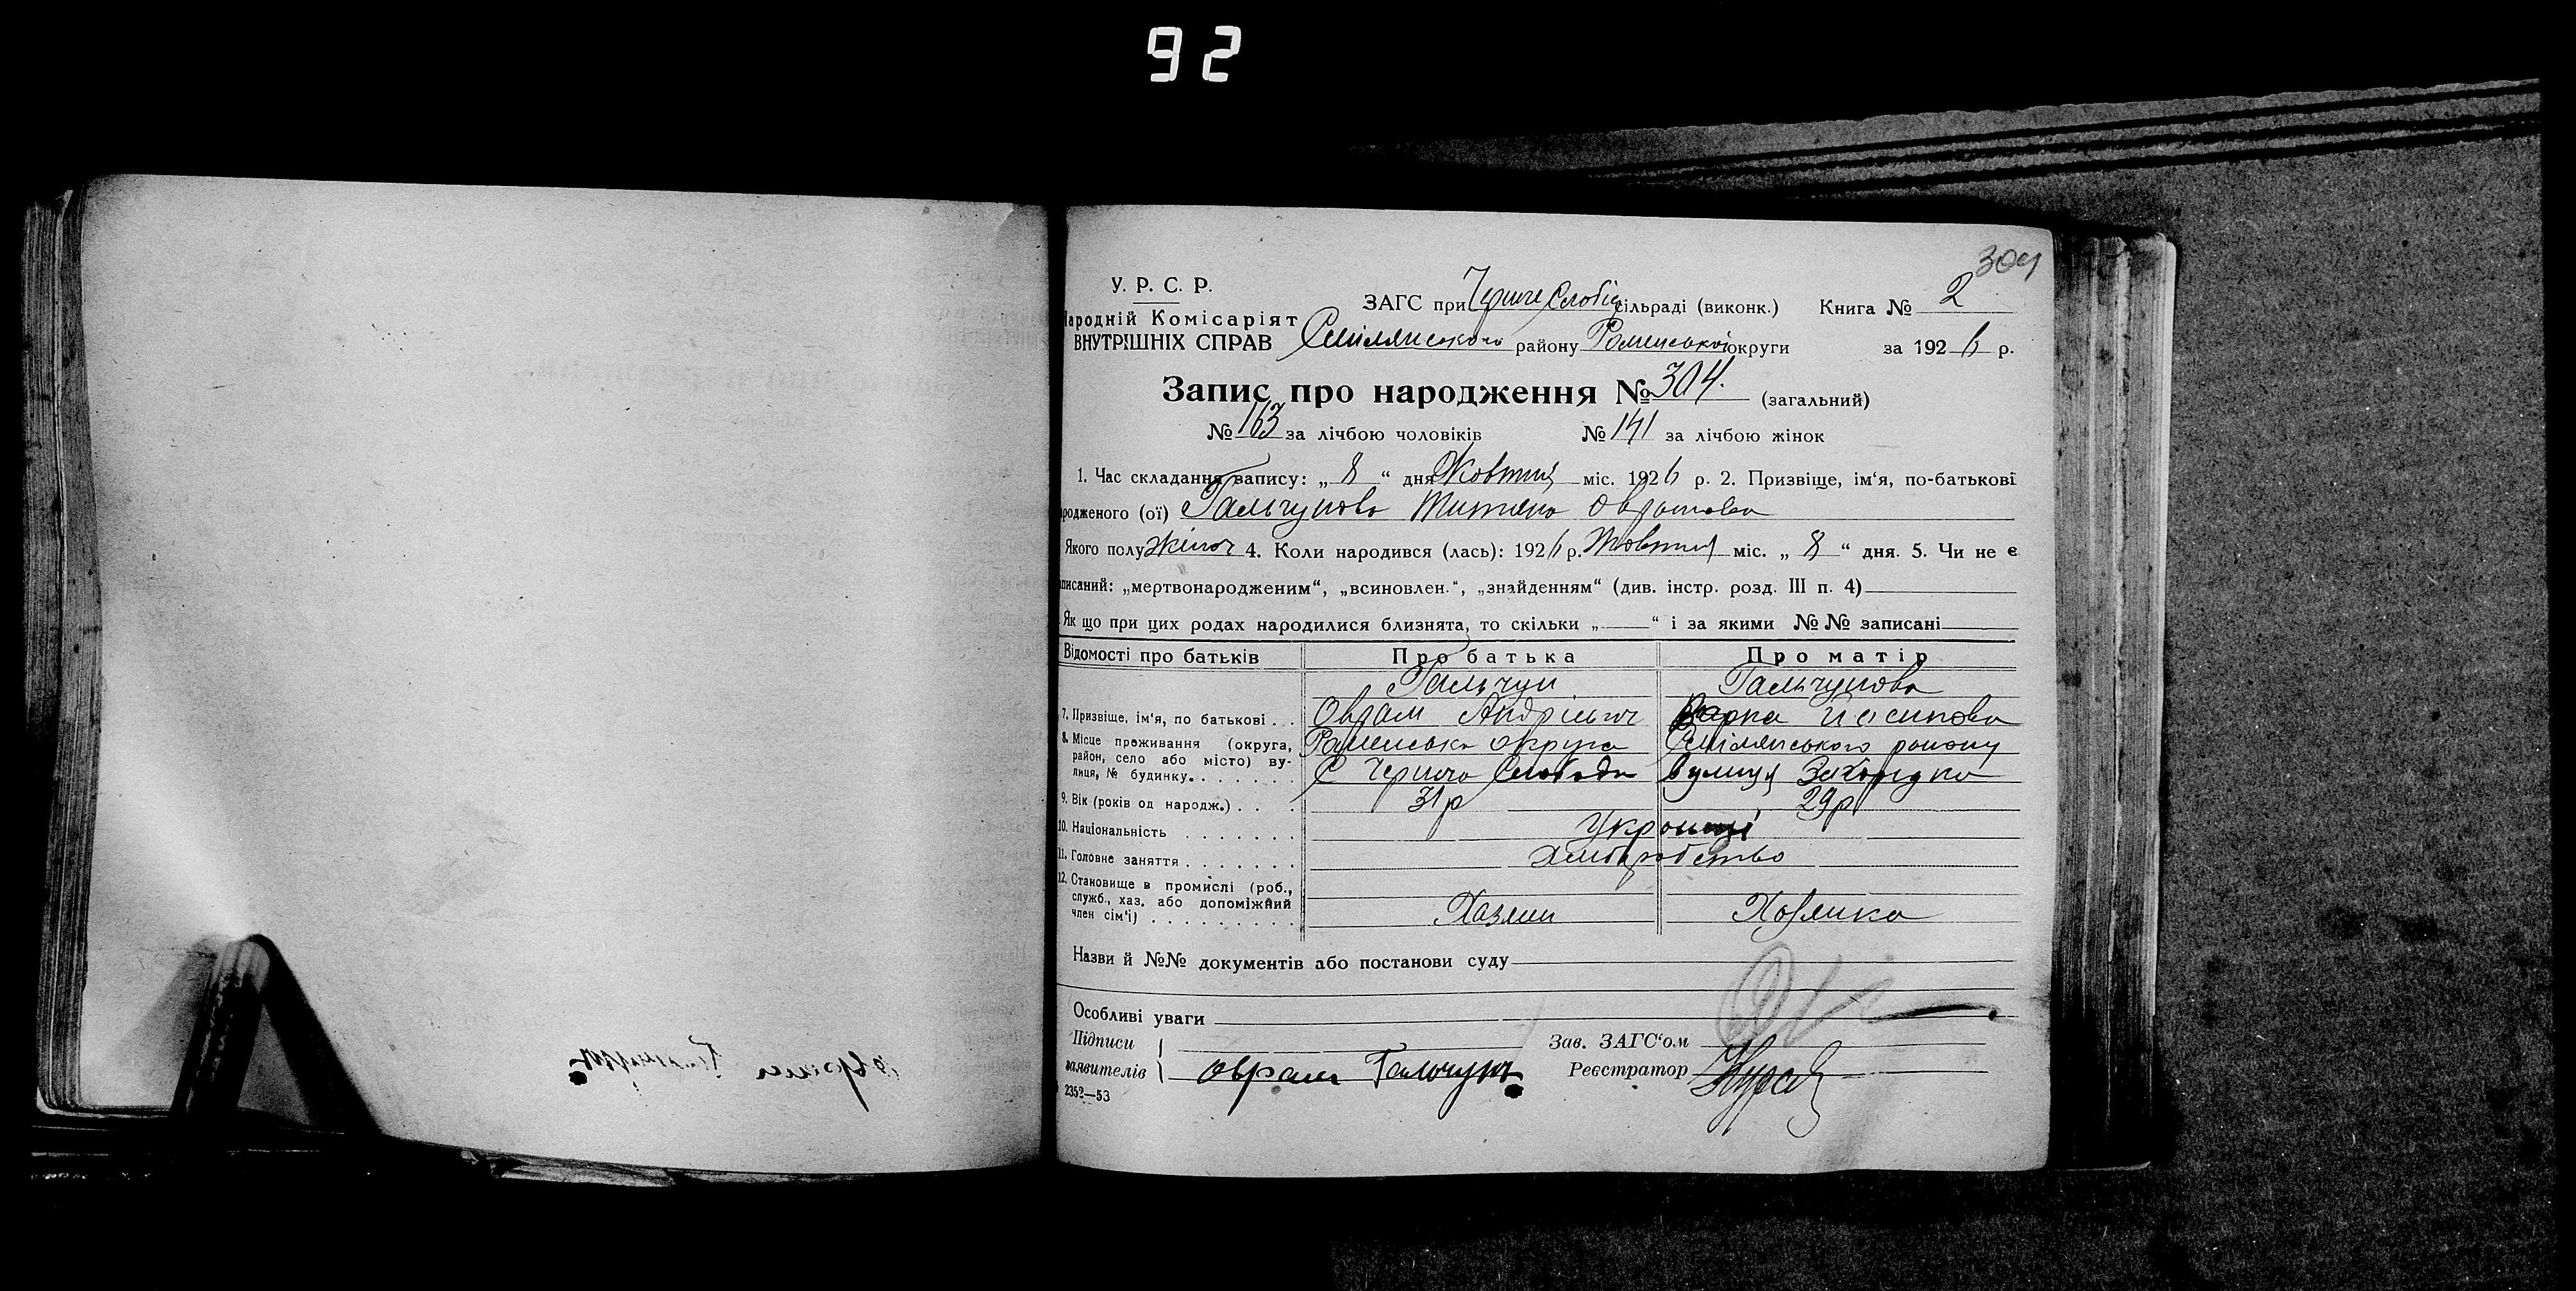 92
304
У. Р. С. Р.
ЗАГС при Черче Слобід сільраді (виконк.) Книга № 2
Народній Комісаріят
ВНУТРІШНІХ СПРАВ Смілянського району Роменської округи за 1926 р.
Запис про народження № 304. (загальний)
№ 163 за лічбою чоловіків № 141 за лічбою жінок
1. Час складання запису: „ 8 “ дня Жовтня міс. 1926 р. 2. Призвіще, ім‘я, по-батькові
родженого (ої) Гальчунова Титяна Оврамова
Якого полу жіноч 4. Коли народився (лась): 1926 р. Жовтня міс. „ 8 “ дня. 5. Чи не є
писаний: „мертвонародженим“, „всиновлен.“, „знайденням“ (див. інстр. розд. III п. 4)
Як що при цих родах народилися близнята, то скільки „ “ і за якими №№ записані
Відомості про батьків Про батька Про матір
Гальчун Гальчунова
7. Призвіще, ім‘я, по батькові . . Оврам Андрієвич Варка Йосипова
8. Місце проживання (округа, Роменська округа Смілянського району
район, село або місто) ву-
лиця, № будинку. С Черча Слобода вулиця
9. Вік (років од народж.) . . . 31 р 29 р
10. Національність Українці
11. Головне заняття Хліборобство
12. Становище в промислі (роб.,
служб., хаз. або допоміжний
член сім‘ї) Хазяин Хазяика
Назви й №№ документів або постанови суду
Особливі уваги
Підписи Зав. ЗАГС‘ом
заявителів Оврам Гальчун Реєстратор
2352—53